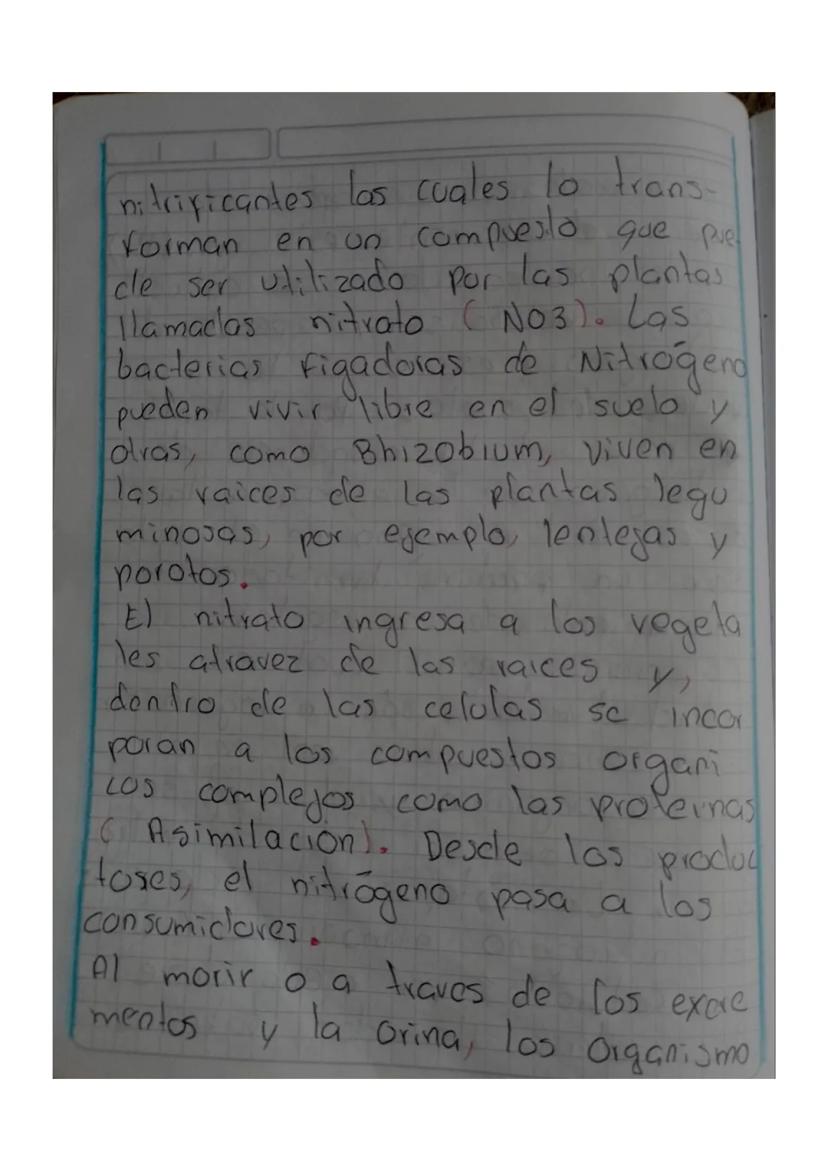 nitrificantes las cuales lo trans-
forman en un compuesto que pue
de ser utilizado por las plantas
llamadas nitrato (NO3). Las
bacterias figadoras de Nitrógeno
pueden vivir libre en el suelo y
otras, como Bhizobium, viven en
las raices de las plantas legu
minosas, por ejemplo, lentejas y
porotos.
El nitrato ingresa a los vegeta
les atravez de las raices y,
dentro de las celulas se incor
poran a los compuestos organi
cos complejos como las proteinas
(Asimilación). Desde los produc
tores, el nitrógeno pasa a los
consumidores.
Al morir o a traves de los excre
mentos y la orina, los organismo